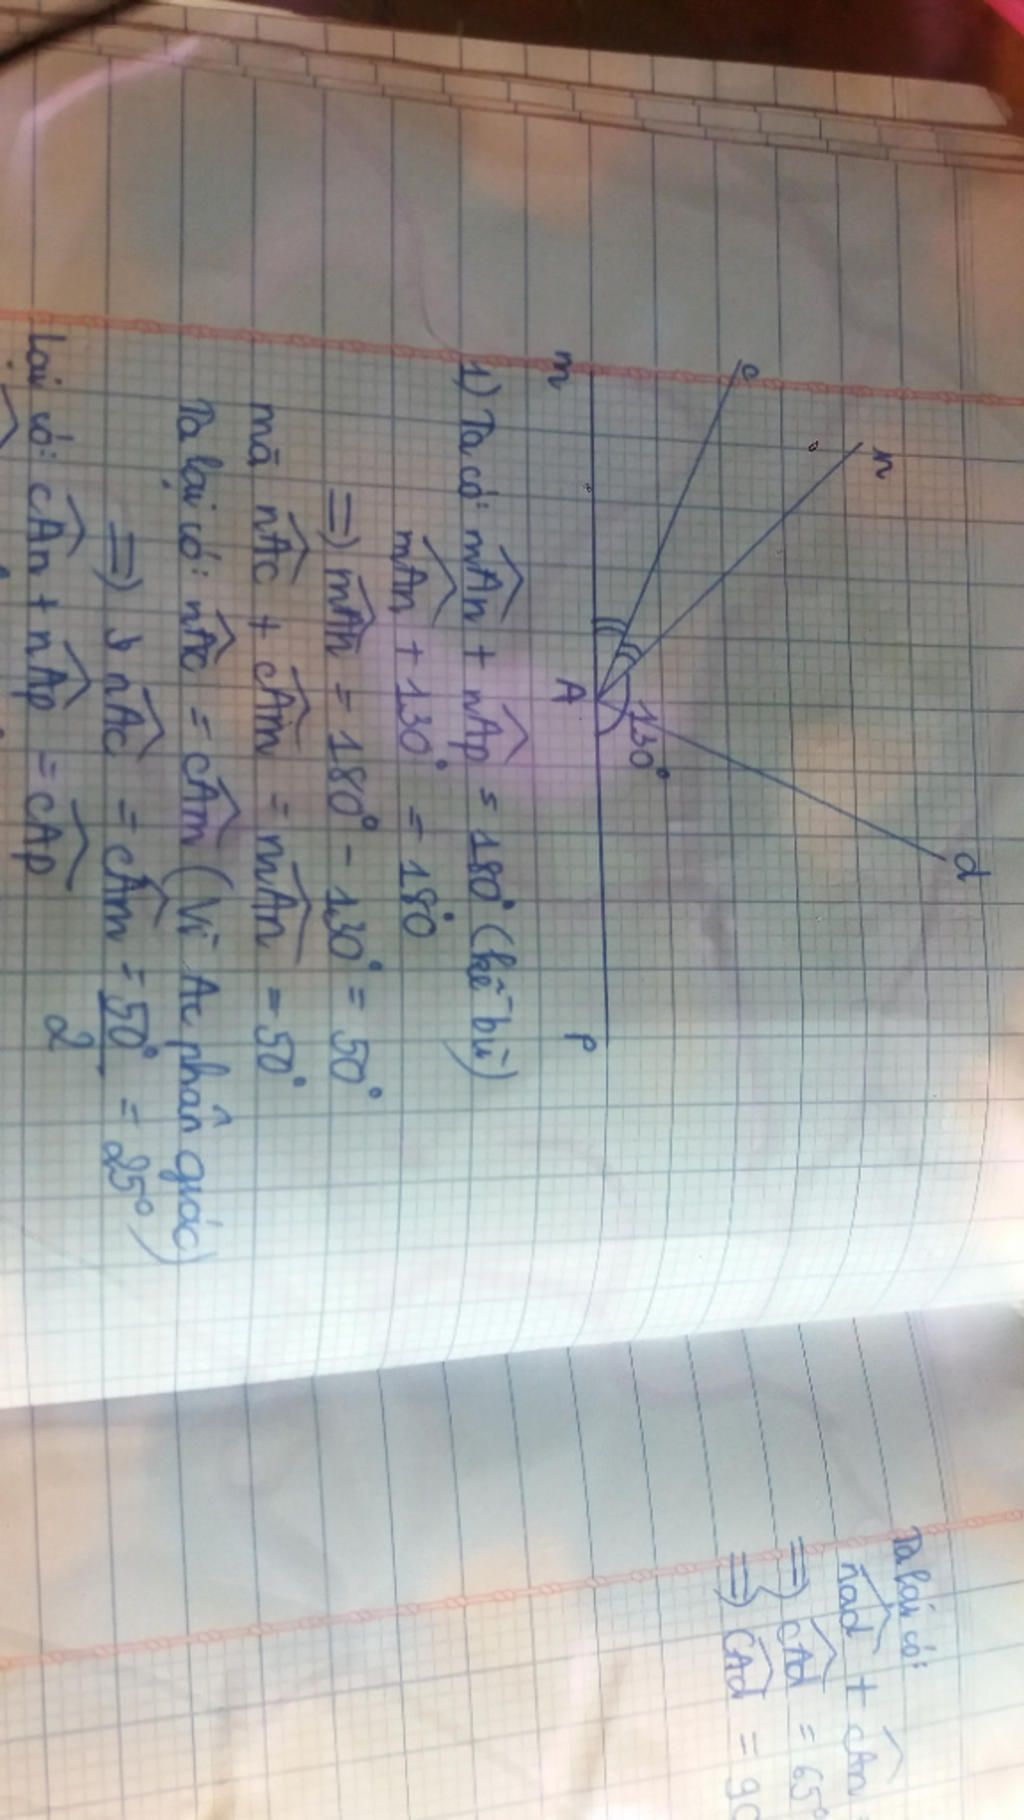 c
n
d
130°
m
A
p
1) Ta có: mAn + nAp = 180° (kề bù)
mAn + 130° = 180°
=> mAn = 180° - 130° = 50°
mà nAc + cAm = mAn = 50°
Ta lại có: nAc = cAm (Vì Ac phân giác)
=> nAc = cAm = 50°/2 = 25°)
Lại có: cAn + nAp = cAp
Ta lại có:
nad + cAn
=> cAd = 65°
=> cAd = 90